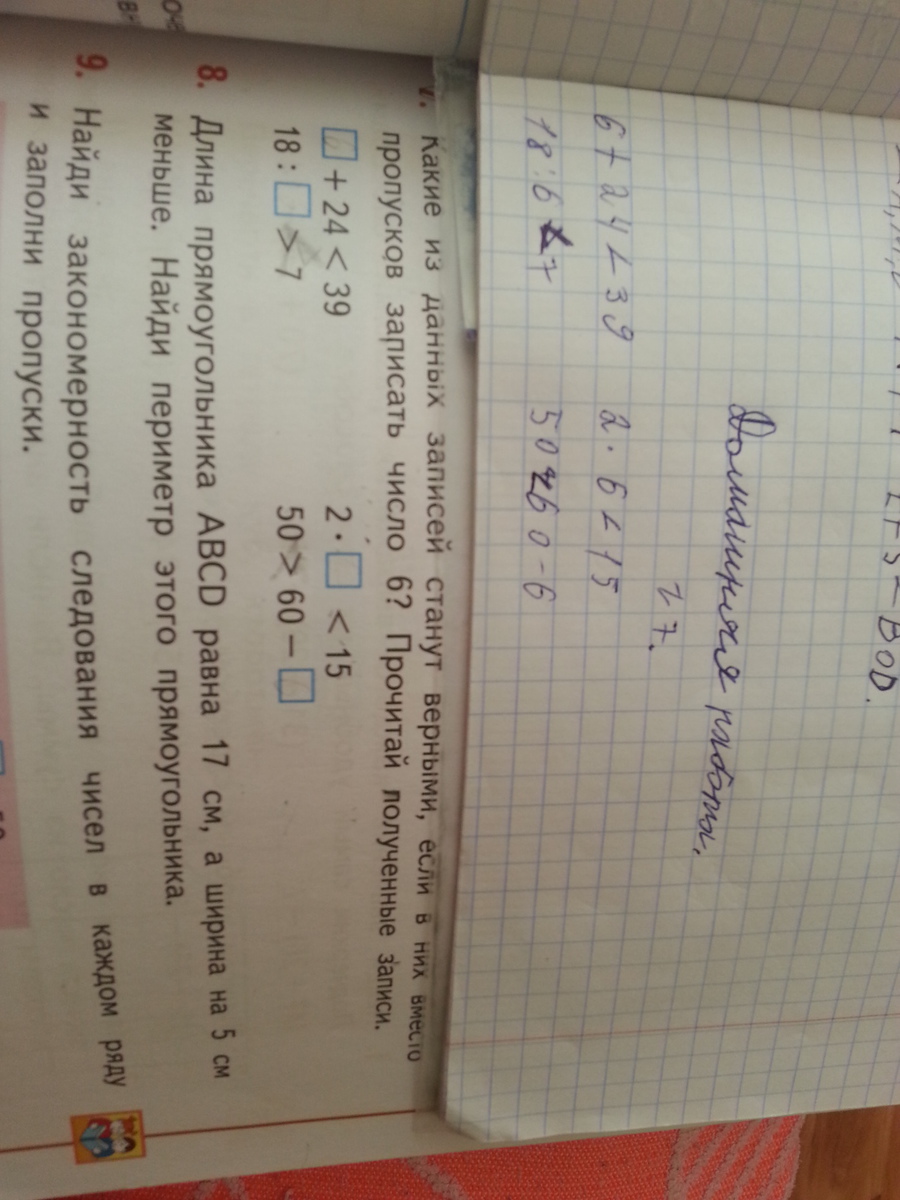 Домашняя работа.
27.
6 + 24 < 39 2 · 6 < 15
18 : 6 < 7 50 < 60 - 6
7. Какие из данных записей станут верными, если в них вместо
пропусков записать число 6? Прочитай полученные записи.
6 + 24 < 39 2 · □ < 15
18 : □ > 7 50 > 60 − □
8. Длина прямоугольника ABCD равна 17 см, а ширина на 5 см
меньше. Найди периметр этого прямоугольника.
9. Найди закономерность следования чисел в каждом ряду
и заполни пропуски.